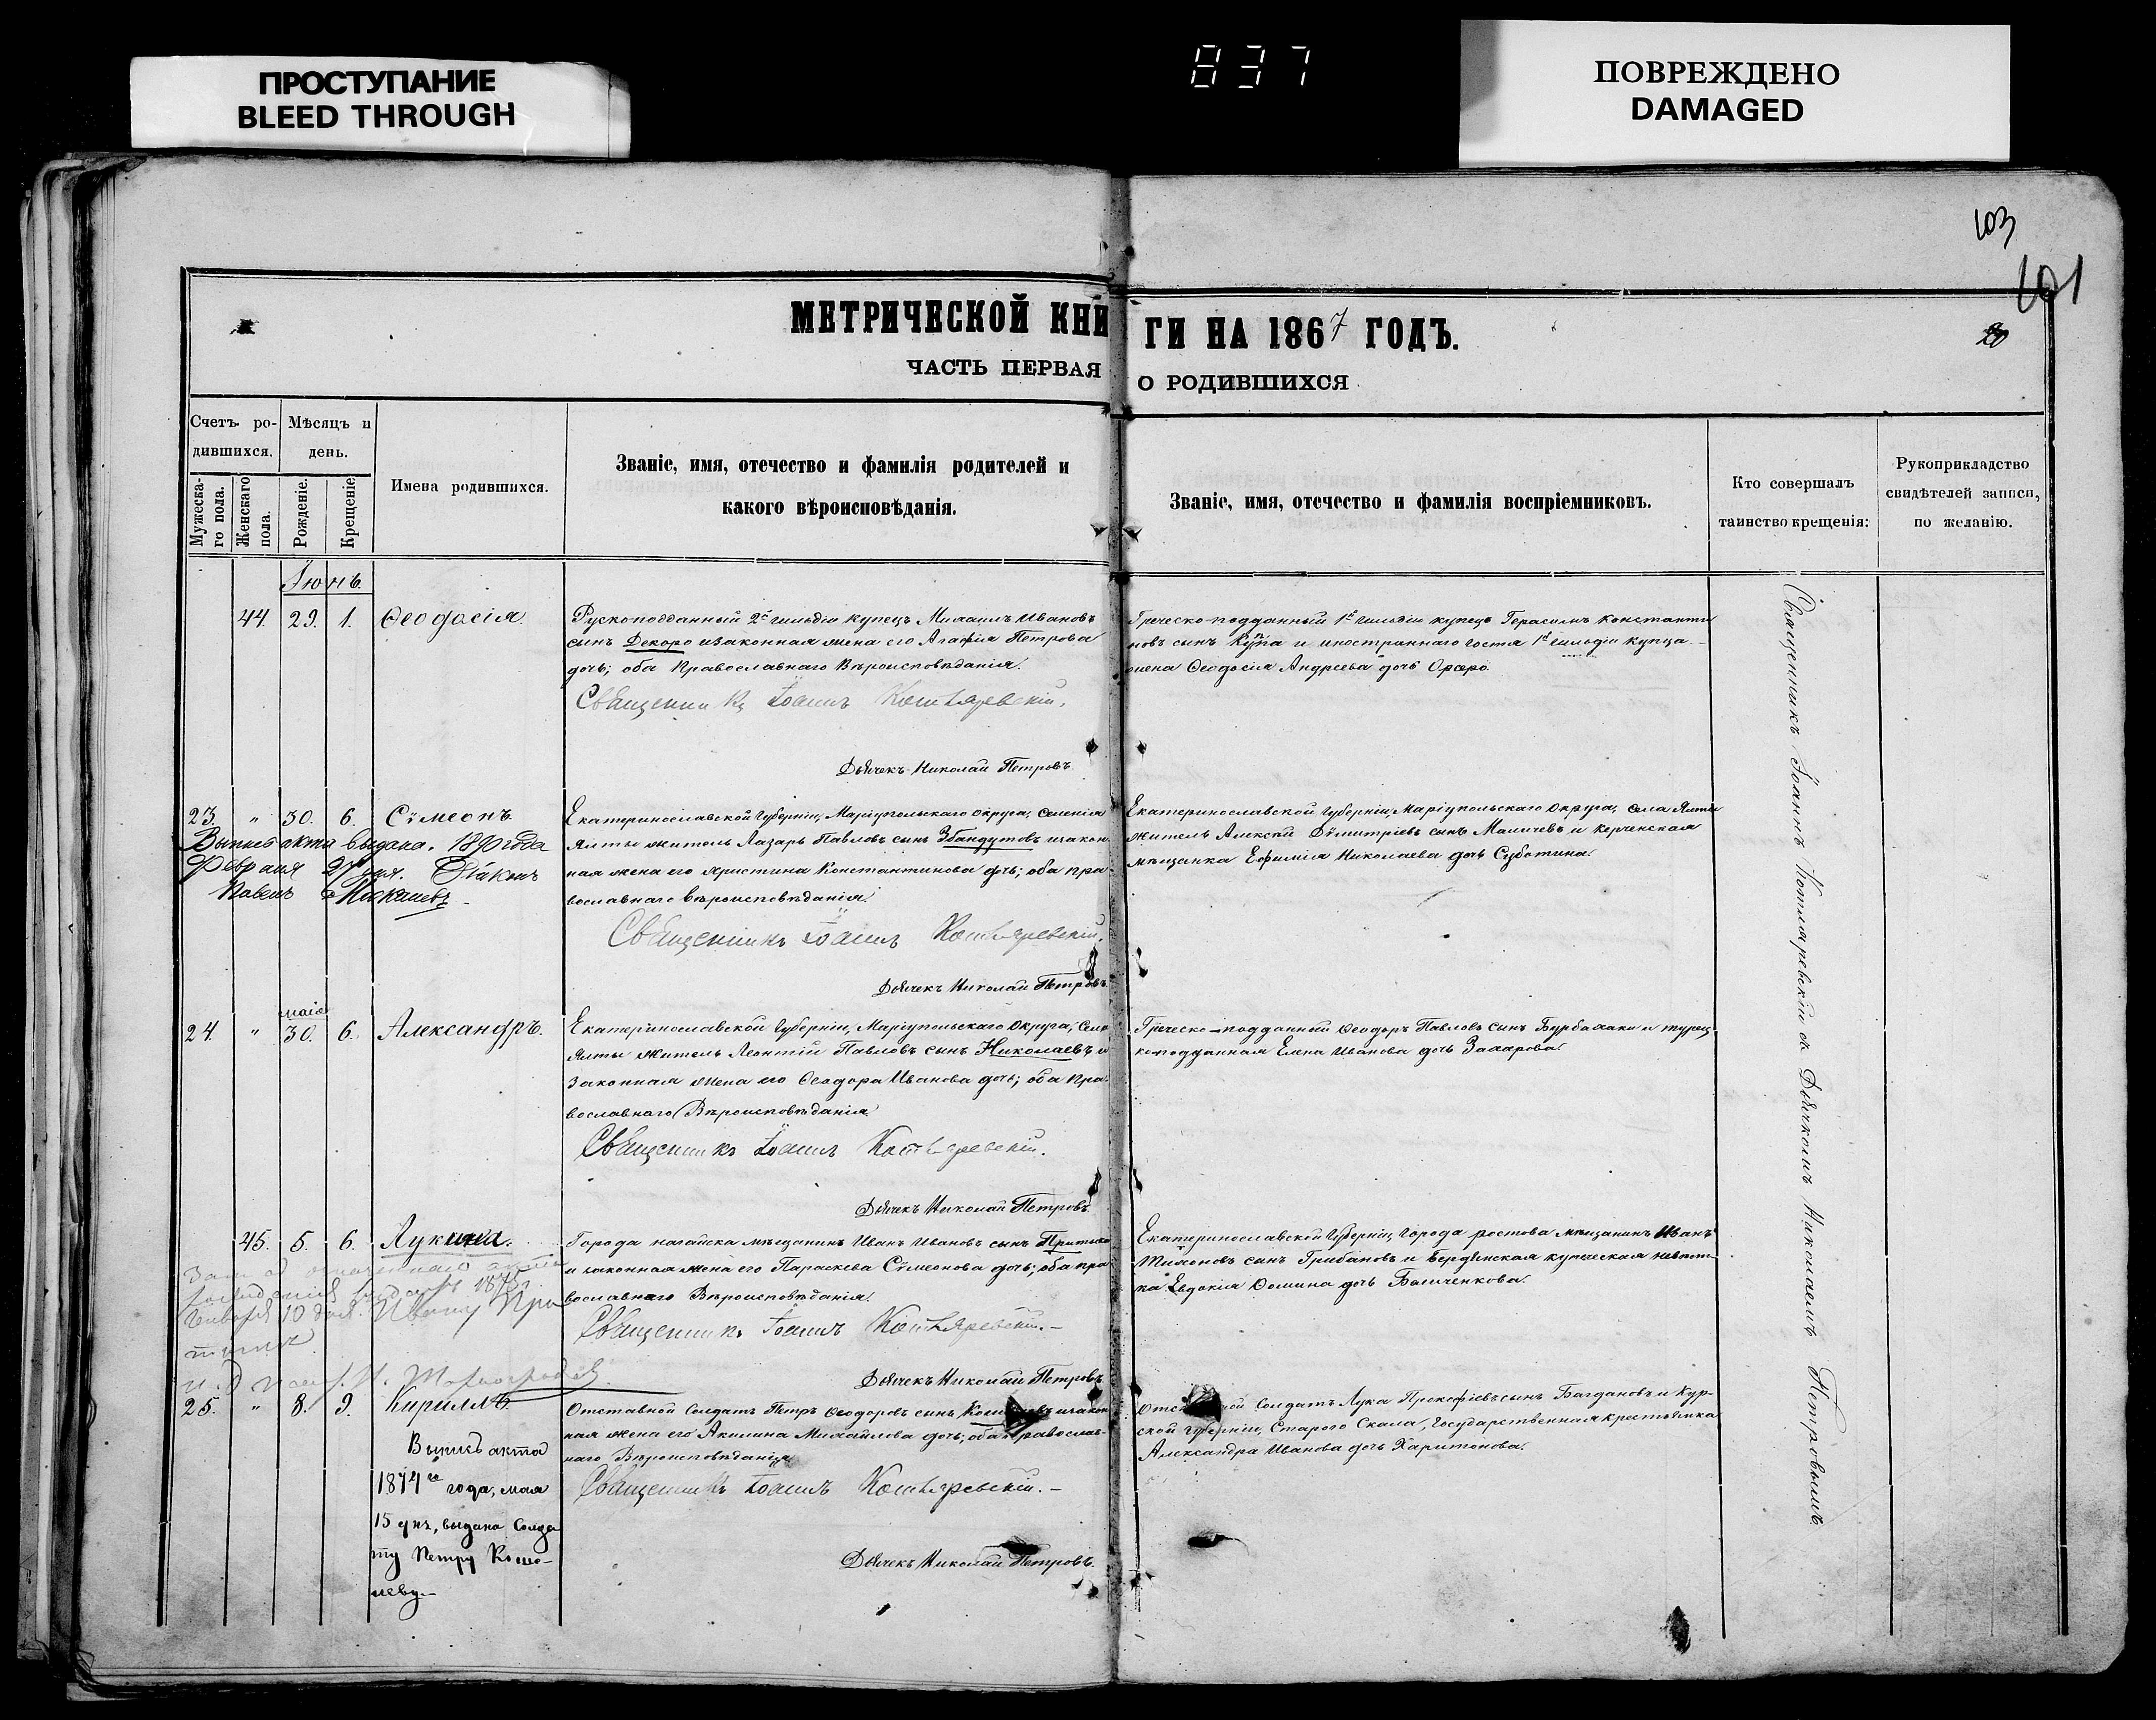 ПРОСТУПАНИЕ
BLEED THROUGH
837
ПОВРЕЖДЕНО
DAMAGED
103
101
МЕТРИЧЕСКОЙ КНИГИ НА 1867 ГОДЪ.
ЧАСТЬ ПЕРВАЯ О РОДИВШИХСЯ
Счетъ ро-
дившихся.
Мужеска-
го пола.
Женскаго
пола.
Мѣсяцъ и
день.
Рожденіе.
Крещеніе
Имена родившихся.
Званіе, имя, отечество и фамилія родителей и
какого вѣроисповѣданія.
Званіе, имя, отечество и фамилія воспріемниковъ.
Кто совершалъ
таинство крещенія:
Рукоприкладство
свидѣтелей записи,
по желанію.
Іюнь.
44. 29. 1. Ѳеодосія.
Рускоподданный 2й гильдіи купецъ Михаилъ Ивановъ
сынъ Декоро и законная жена его Агафія Петрова
дочь; оба Православнаго Вѣроисповѣданія.
Священникъ Іоаннъ Котляревскій.
Дьячекъ Николай Петровъ.
Греческо-подданный 1й гильдіи купецъ Герасимъ Константи
новъ сынъ Купа и иностраннаго гостя 1й гильдіи купца
жена Ѳеодосія Андреева дочь
23. " 30. 6. Сѵмеонъ.
Екатеринославской Губерніи, Маріупольскаго Округа, Селенія
Ялты житель Лазарь Павловъ сынъ Збандутовъ и закон
ная жена его Христина Константинова дочь; оба пра-
вославнаго вѣроисповѣданія.
Священникъ Іоаннъ Котляревскій.
Дьячекъ Николай Петровъ.
Екатеринославской Губерніи, Маріупольскаго Округа, села Ялты
житель Алексѣй Димитріевъ сынъ Маличевъ и керченская
мѣщанка Ефимія Николаева дочь Суботина.
Выпись акта выдана. 1890 года
Февраля 27 дня. Діаконъ
Павелъ
маія
24. " 30. 6. Александръ.
Екатеринославской Губерніи, Маріупольскаго Округа, Села
Ялты житель Леонтій Павловъ сынъ Николаевъ и
законная жена его Ѳеодора Иванова дочь; оба пра-
вославнаго Вѣроисповѣданія.
Священникъ Іоаннъ Котляревскій.
Дьячекъ Николай Петровъ.
Греческо-подданный Ѳеодоръ Павловъ сынъ Бурбахаки и турец-
коподданная Елена Иванова дочь Захарова.
45. 5. 6.
Города ногайска мѣщанинъ Иванъ Ивановъ сынъ
и законная жена его Параскева Сѵмеонова дочь; оба пра
вославнаго Вѣроисповѣданія.
Священникъ Іоаннъ Котляревскій.
Дьячекъ Николай Петровъ.
Екатеринославской Губерніи города ростова мѣщанинъ Иванъ
Тихоновъ сынъ Грибановъ и Бердянская купеческая
Евдокія Ѳомина дочь Баличенкова.
Января 10 дня. Ивану
25. " 8. 9. Кириллъ.
Отставной Солдатъ Петръ Ѳеодоровъ сынъ и закон
ная жена его Акилина Михайлова дочь; оба православ-
наго Вѣроисповѣданія.
Священникъ Іоаннъ Котляревскій.
Дьячекъ Николай Петровъ.
Солдатъ Лука Прокофіевъ сынъ Багдановъ и Кур-
ской губерніи, Старого Скола, Государственная крестьянка
Александра Иванова дочь Харитонова.
Выпись акта
1874го года, мая
15 дня, выдана Солда
ту Петру Кошо-
леву
Священникъ Іоаннъ Котляревскій съ Дьячкомъ Николаемъ Петровымъ